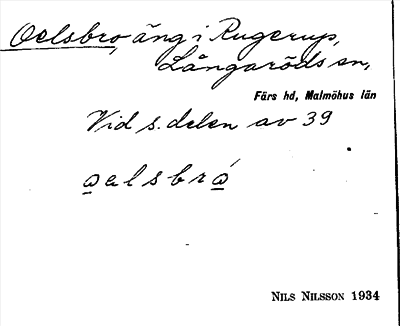 Oelsbro, äng i Rugerup,
Långaröds sn,
Färs hd, Malmöhus län
Vid s. delen av 39
o̲elsbró̲
NILS NILSSON 1934